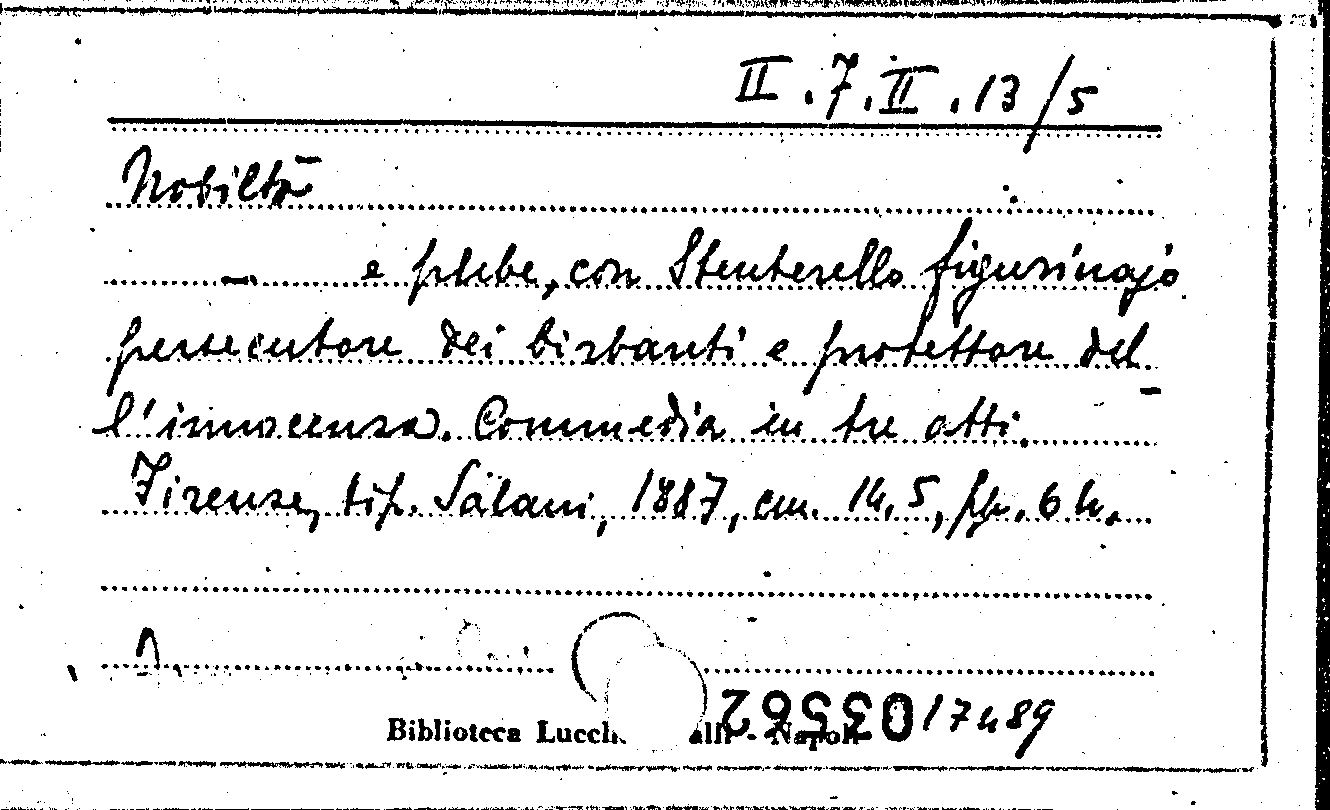 II.7.II.13/5
Nobiltà
— e plebe, con Stenterello figurinajo
persecutore dei birbanti e protettore del-
l'innocenza. Commedia in tre atti.
Firenze, tip. Salani, 1887, cm. 14,5, pp. 64.
Biblioteca Lucch alli - Napoli 035562 17489